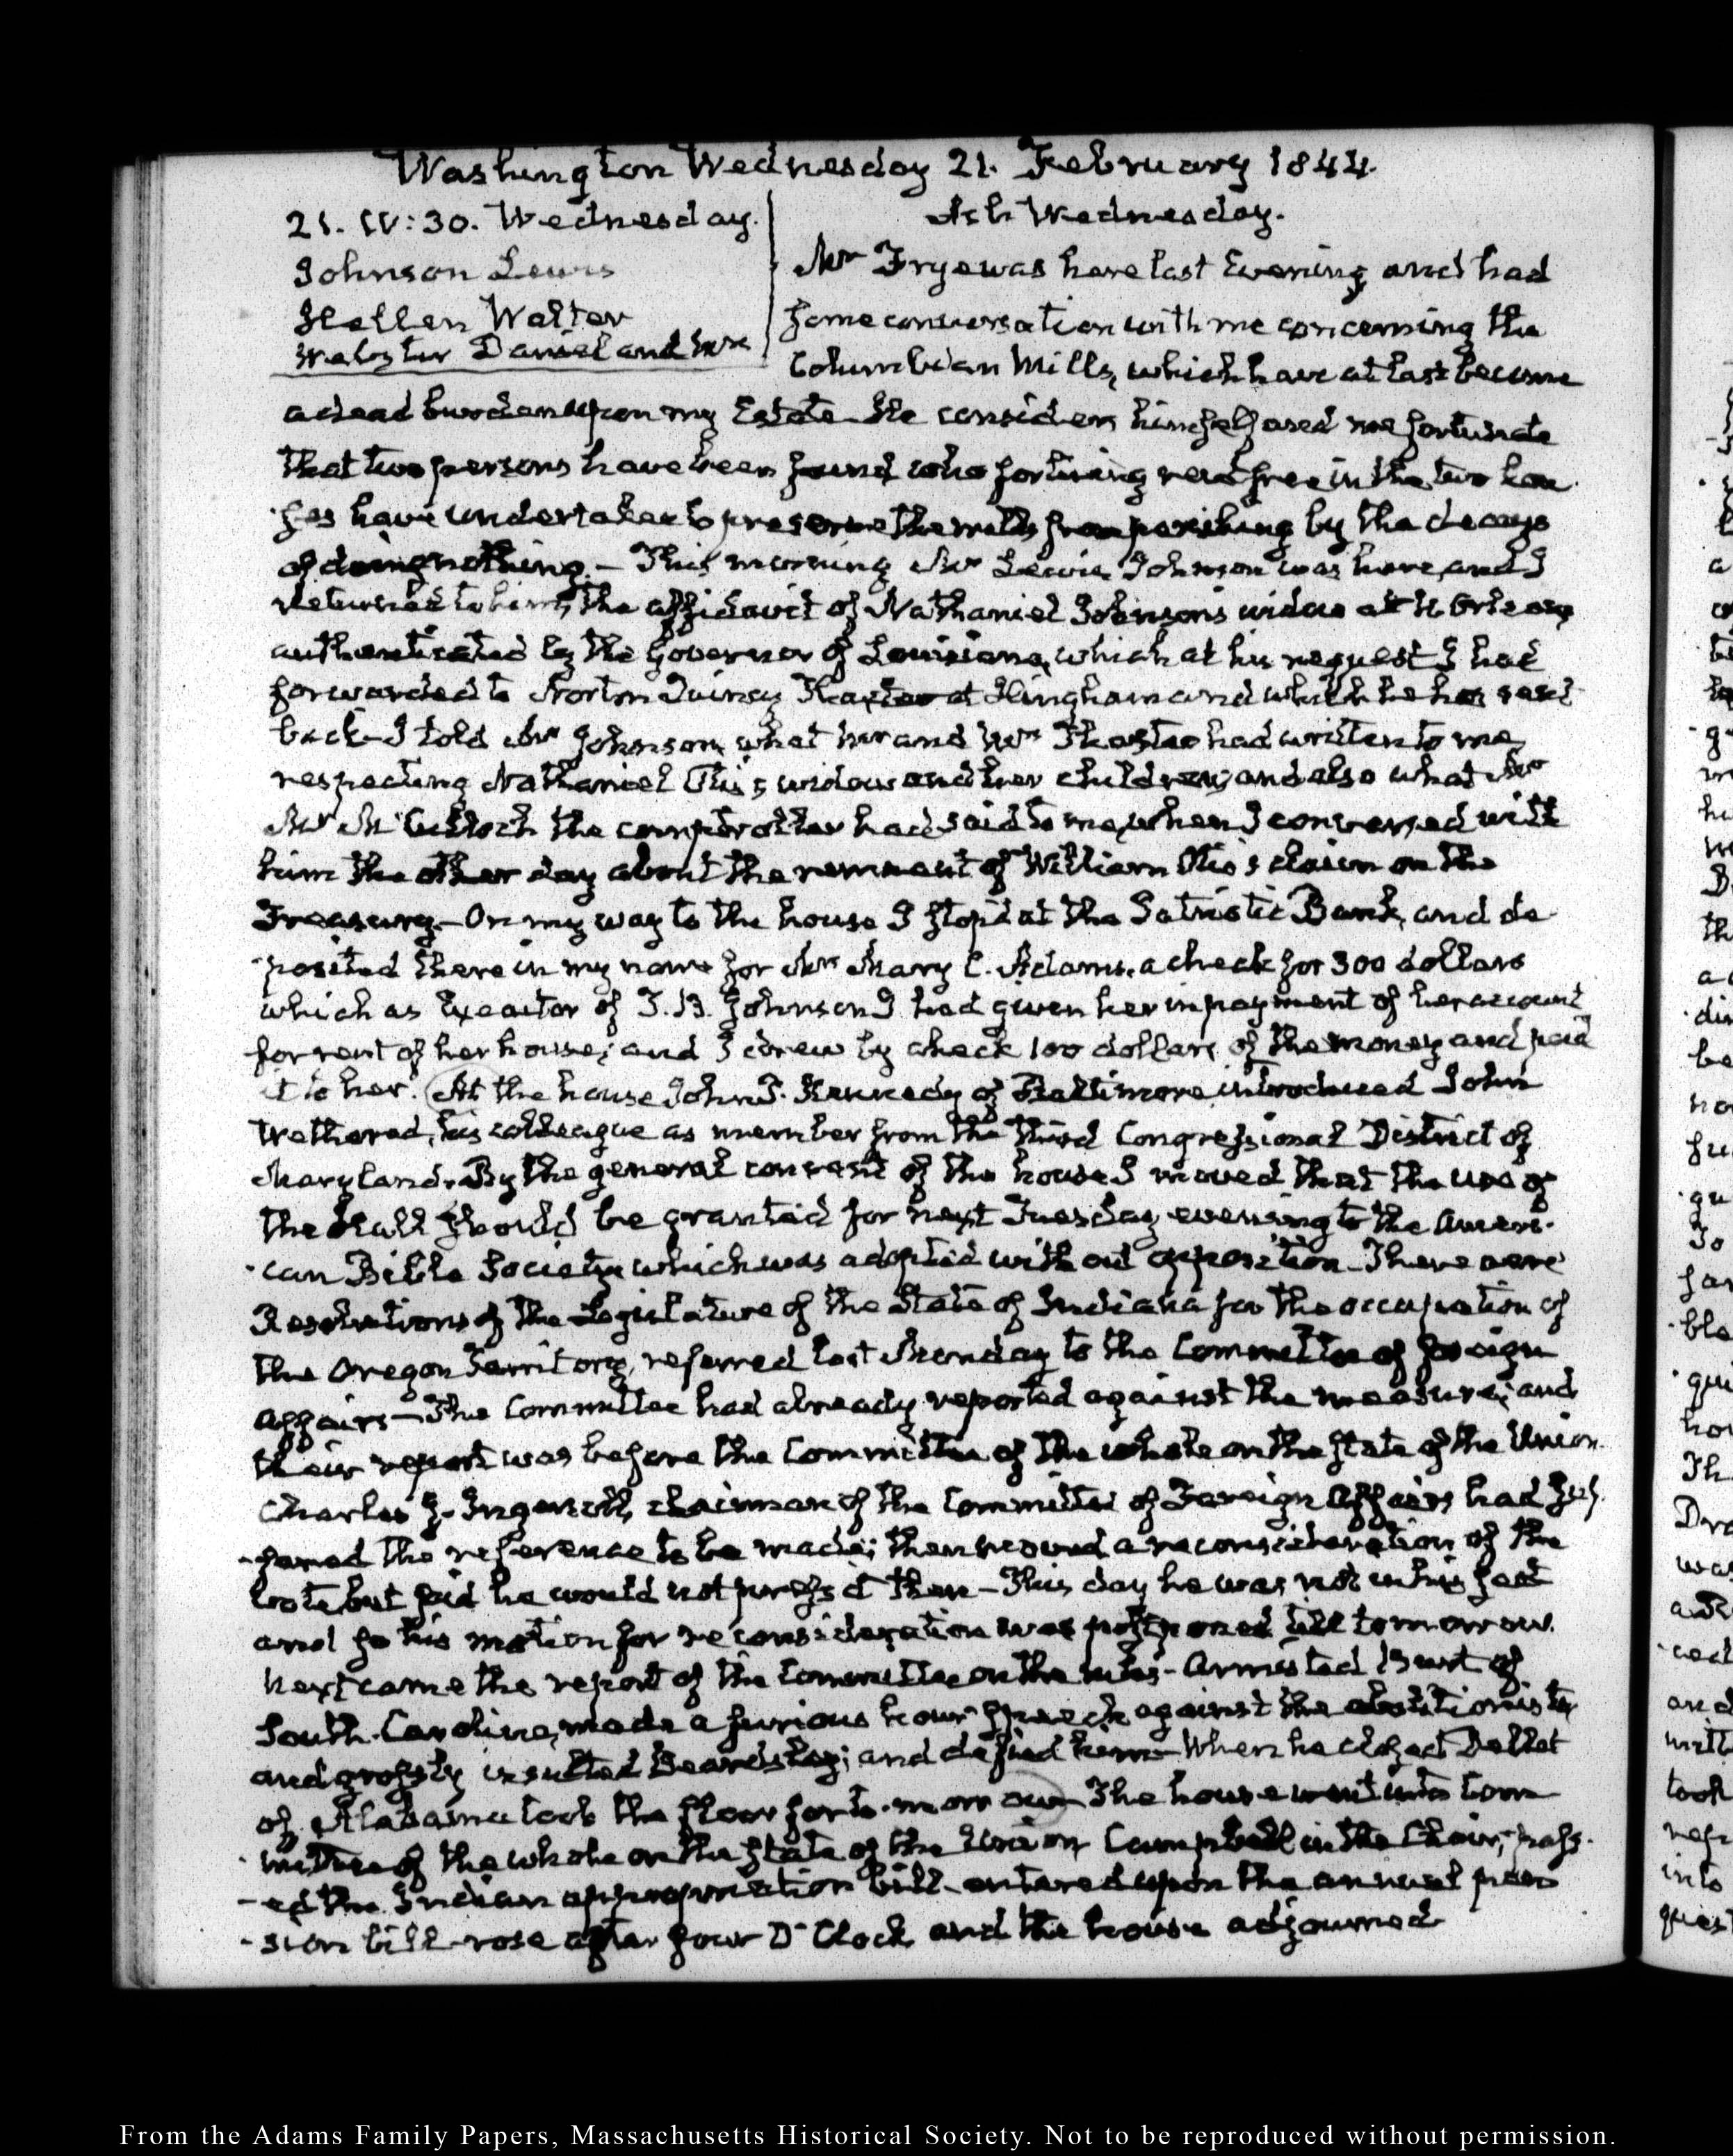 Washington Wednesday 21. February 1844.
21. IV:30. Wednesday.
Johnson Lewis
Hellen Walter
Webster Daniel and Mrs
Ash Wednesday.
Mr Frye was here last Evening and had
some conversation with me concerning the
Columbian Mills, which have at last become
a dead burden upon my Estate. He considers himself and me fortunate
that two persons have been found who for living rent free in the two hou
ses have undertaken to preserve the mills from perishing by the decays
of doing nothing.— This morning Mr Lewis Johnson was here, and I
returned to him, the affidavit of Nathaniel Johnson's widow at N. Orleans
authenticated by the Governor of Louisiana, which at his request I had
forwarded to Norton Quincy Thaxter at Hingham and which he has sent
back— I told Mr Johnson, what he and Mrs Thaxter had written to me,
respecting Nathaniel Otis's widow and her children; and also what Mr
Mr McCulloch the comptroller had said to me, when I conversed with
him the other day about the remnant of William Otis's claim on the
Treasury.— On my way to the house I stop'd at the Patriotic Bank, and de
-posited there in my name for Mrs Mary C. Adams, a check for 300 dollars
which as Executor of T. B. Johnson I had given her in payment of her account
for rent of her house; and I drew by check 100 dollars of the money and paid
it to her. At the house John P. Kennedy of Baltimore introduced John
Wethered, his colleague as member from the third Congressional District of
Maryland. By the general consent of the house I moved that the use of
the Hall should be granted for next Tuesday evening to the Ameri-
-can Bible Society which was adopted without opposition— There were
Resolutions of the Legislature of the State of Indiana for the occupation of
the Oregon Territory, referred last Monday to the Committee of foreign
Affairs— The Committee had already reported against the measure; and
their report was before the Committee of the whole on the state of the Union.
Charles J. Ingersoll, chairman of the Committee of Foreign Affairs had suf-
-fered the reference to be made; then moved a reconsideration of the
vote, but said he would not press it then— This day he was not in his seat
and so his motion for reconsideration was postponed till tomorrow.
Next came the report of the Committee on the rules— Armisted Burt of
South-Carolina, made a furious hour speech against the abolitionists
and grossly insulted Beardsley; and defied him— When he closed Dellet
of Alabama took the floor for to-morrow— The house went into Com
-mittee of the whole on the state of the Union, Campbell in the Chair, pass-
-ed the Indian appropriation bill— entered upon the annual pen
-sion bill— rose after four O'Clock and the house adjourned
From the Adams Family Papers, Massachusetts Historical Society. Not to be reproduced without permission.